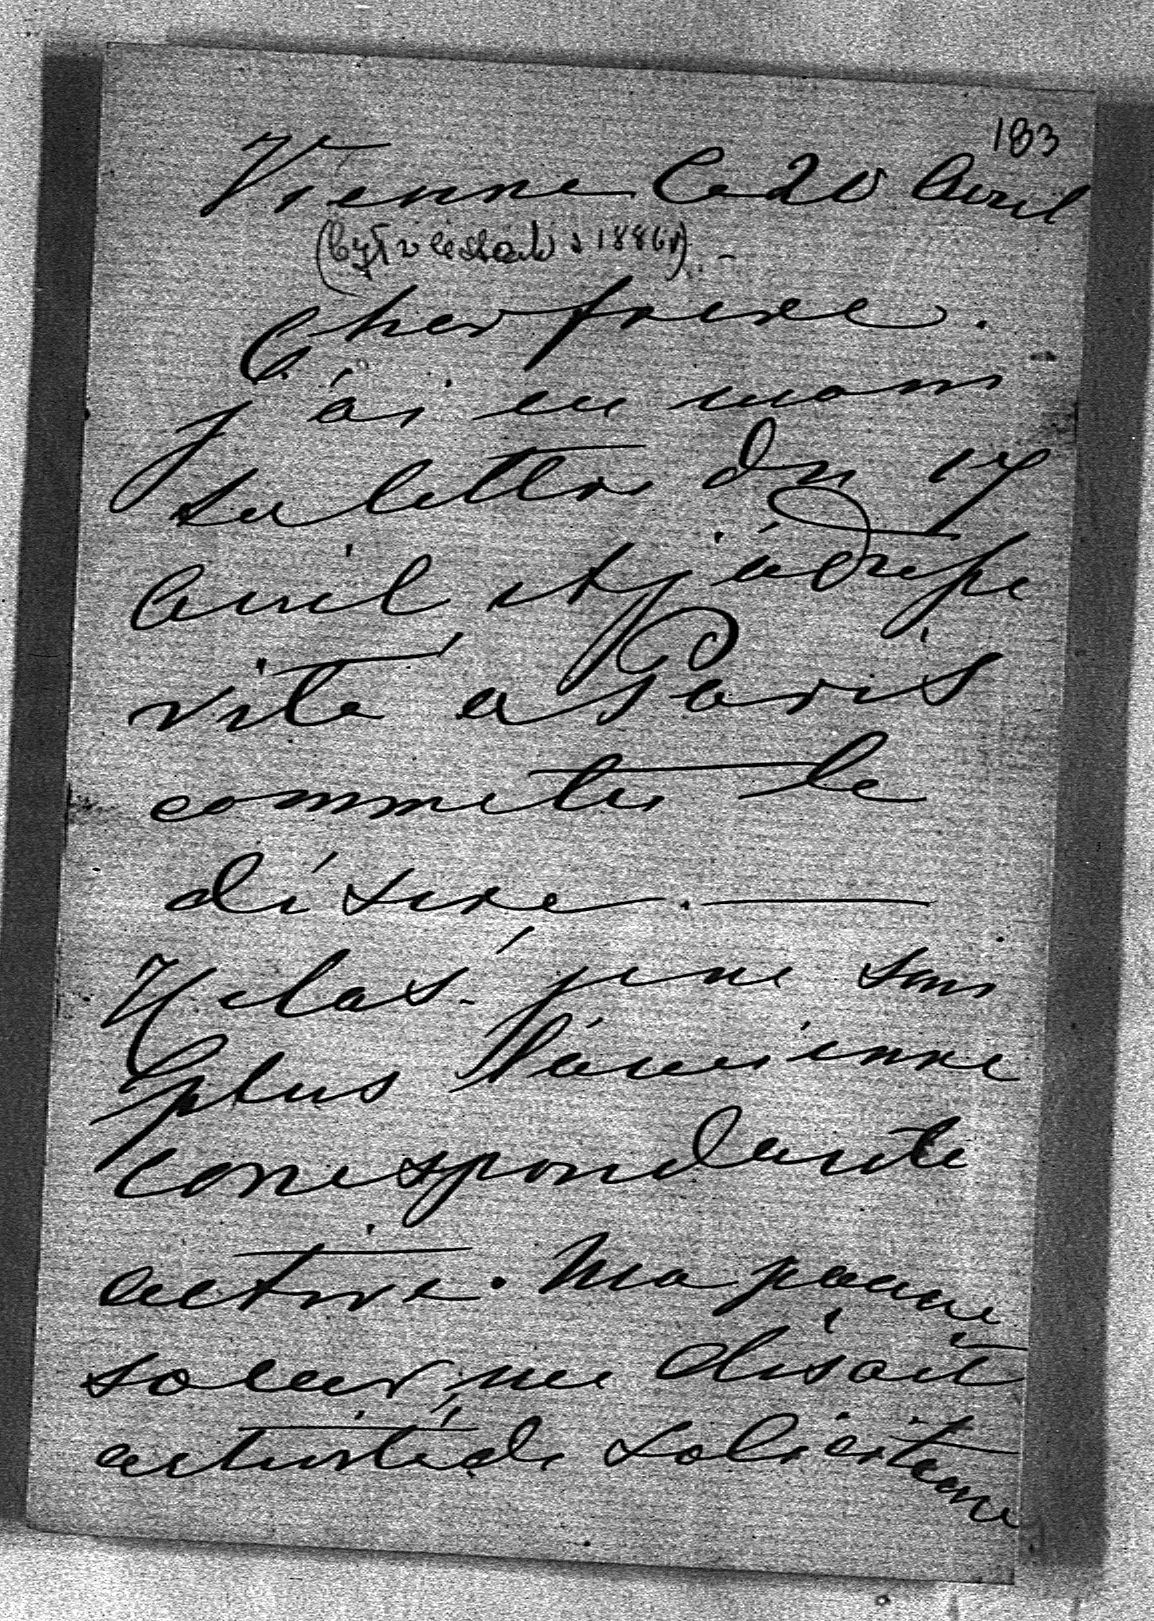 183
Vienne le 20 Avril
1886
Cher frere.
j'ai eu mon
ta lettre du 17
Avril et j'adresse
vite à Paris
comme tu le
désire. —
Helas. je ne suis
plus l'ancienne
correspondante
active. Ma pauvre
soeur, me disait
activité de